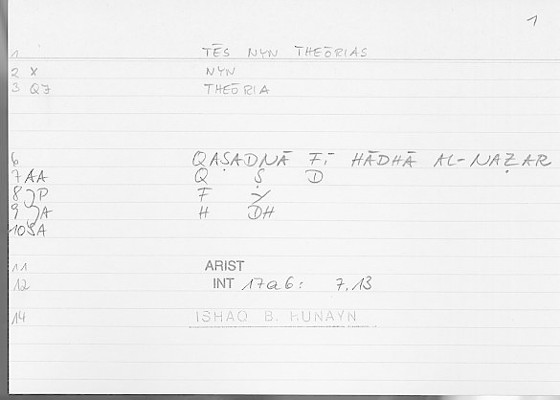 1
1 TĒS NYN THEŌRIAS
2 X NYN
3 QZ THEŌRIA
6 QAṢADNĀ FĪ HĀDHĀ AL-NAẒAR
7 AA Q Ṣ D
8 JP F Y
9 JA H DH
10 SA
11 ARIST
12 INT 17a6: 7.13
14 ISHAQ B. HUNAYN